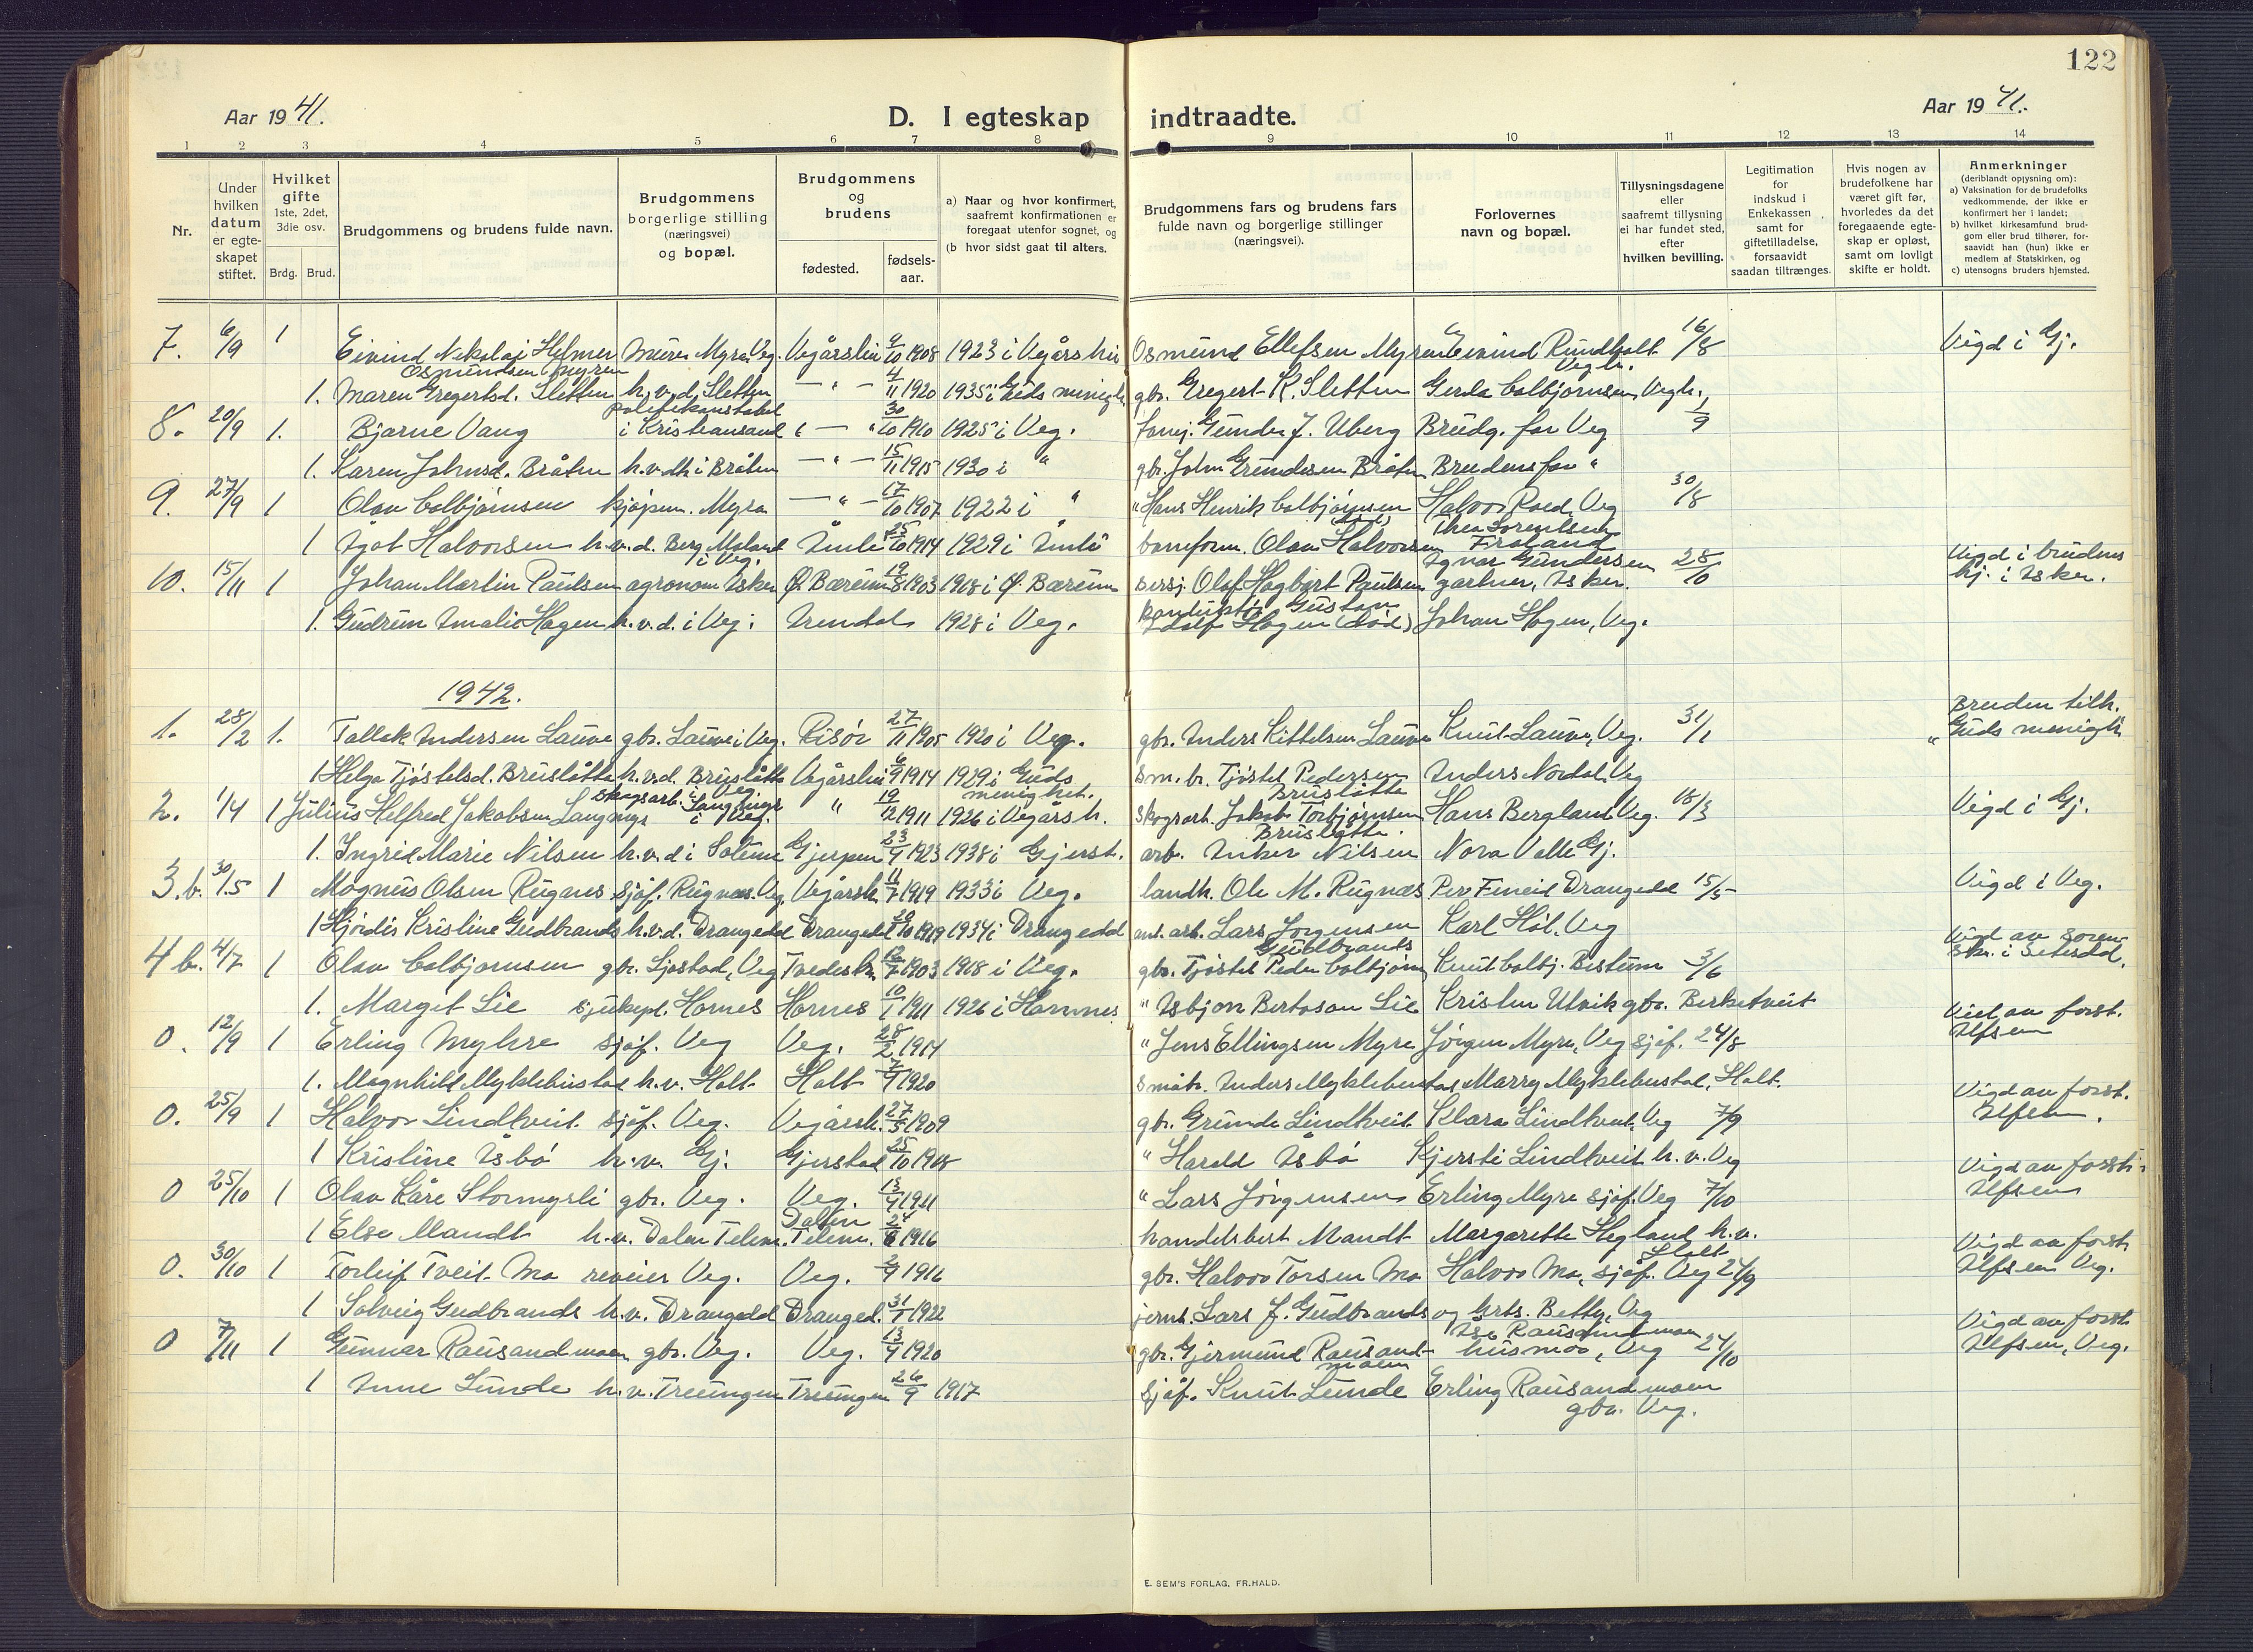 122
Aar 1941.
D. I egteskap indtraadte.
Aar 1941.
1 2 3 4 5 6 7 8 9 10 11 12 13 14
Nr.
Under hvilken datum er egte-skapet stiftet.
Hvilket gifte 1ste, 2det, 3die osv.
Brdg. Brud.
Brudgommens og brudens fulde navn.
Brudgommens borgerlige stilling (næringsvei) og bopæl.
Brudgommens og brudens
fødested.
fødsels-aar.
a) Naar og hvor konfirmert, saafremt konfirmationen er foregaat utenfor sognet, og (b hvor sidst gaat til alters.
Brudgommens fars og brudens fars fulde navn og borgerlige stillinger (næringsvei).
Forlovernes navn og bopæl.
Tillysningsdagene eller saafremt tillysning ei har fundet sted, efter hvilken bevilling.
Legitimation for indskud i Enkekassen samt for giftetilladelse, forsaavidt saadan tiltrænges.
Hvis nogen av brudefolkene har været gift før, hvorledes da det foregaaende egte-skap er opløst, samt om lovligt skifte er holdt.
Anmerkninger (deriblandt opjysning om): a) Vaksination for de brudefolks vedkommende, der ikke er konfirmert her i landet; b) hvilket kirkesamfund brud-gom eller brud tilhører, for-saavidt han (hun) ikke er medlem af Statskirken, og c) utensogns bruders hjemsted.
7. 6/9 1 Eivind Nikolai Helmer Osmundsen Myren murer Myra Veg. Vegårshei 9/10 1908 1923 i Vegårshei Osmund Ellefsen Myren Eivind Rundholt Vegh. 16/8 Vigd i Gj.
1. Maren Gregertsd. Sletten h.v.d. Sletten — " — 4/11 1920 1935 i Guds menigh gbr. Gregert K. Sletten Gerda Colbjørnsen, Vegh.
8. 20/9 1. Bjarne Vang politikonstabel i Kristiansand " — " 30/10 1910 1925 i Veg. Gunder J. Uberg Brudg. far Veg 1/9
1. Karen Johnsd. Bråten h.v.dh i Bråten — " — 15/11 1915 1930 i " gbr. John Gundersen Bråten Brudens far "
9. 27/9 1 Olav Colbjørnsen kjøpm. Myra — " — 17/10 1907 1922 i " " Hans Henrik Colbjørnsen Halvor Roed, Veg 30/8
1 Ågot Halvorsen h.v.d. Berg Moland i Veg. Åmli 25/10 1914 1929 i Åmli Olav Halvorsen Thea Sorentsen Froland
10. 15/11 1 Johan Martin Paulsen agronom Asker Ø. Bærum 19/8 1903 1918 i Ø. Bærum sersj. Olaf Hagbart Paulsen Gundersen gartner, Asker. 28/10 Vigd i brudens hj. i Asker.
1. Gudrun Amalie Hagen h.v.d. i Veg. Arendal 1928 i Veg. konduktør Gustav Adolf Hagen (død) Johan Hagen, Veg.
1942.
1. 28/2 1. Tallak Andersen Lauve gbr. Lauve i Veg. Risør 27/11 1905 1920 i Veg. gbr. Anders Kittelsen Lauve Knut Lauve, Veg. 31/1 Bruden tilh. "Guds menigh"
1 Helga Tjøstelsd. Brusletta h.v.d. Brusletta i Veg Vegårshei 6/9 1914 1929 i Guds menighet. sm. br. Tjøstel Pedersen Brusletta Anders Nordal, Veg
2. 1/4 1 Julius Helfred Jakobsen Langmyr skogsarb. Langmyr i Veg. " 19/12 1911 1926 i Vegårsh. skogsarb. Jakob Torbjørnsen Brusletta. Hans Bergland Veg. 15/3 Vigd i Gj.
1. Ingrid Marie Nilsen h.v.d i Solum Gjerpen 23/9 1923 1938 i Gjerst. arb. Anker Nilsen Nora Valle Gj.
3.b. 30/5 1 Magnus Olsen Rugnes sjåf. Rugnes. Veg. Vegårsh. 11/7 1919 1933 i Veg. landh. Ole M. Rugnæs Per Fineid Drangedal 15/5 Vigd i Veg.
1 Hjördis Kristine Gudbrands h.v.d. Drangedal Drangedal 20/10 1919 1934 i Drangedal anl. arb. Lars Jorgensen Gudbrands Karl Höl, Veg
4b. 4/7 1 Olav Colbjørnsen gbr. Ljøstad, Veg Tvedestr. 12/7 1903 1918 i Veg. gbr. Tjöstel Peder Colbjörns Knut Colbj. Bestum 3/6 Vigd av soren-skr. i Setesdal.
1. Marget Lie sjukepl. Hornes Hornes 10/1 1911 1926 i Hornnes " Asbjon Bertosan Lie Kristen Ulvik gbr. Birketveit
0. 12/9 1 Erling Myhre sjåf. Veg Veg. 28/2 1914 " Jens Ellingsen Myre Jörgen Myre, Veg sjåf. 24/8 Viet av forst. Alfsen
1. Magnhild Myklebustad h.v. Holt Holt 7/9 1920 småbr. Anders Myklebustad Marry Myklebustad, Holt.
0. 25/9 1 Halvor Lindtveit sjåf. Veg. Vegårsh. 27/5 1909 gbr. Grunde Lindtveit Klara Lindtveit, Veg 7/9 Vigd av forst. Alfsen.
1 Kristine Åsbø h.v. Gj. Gjerstad 25/10 1918 " Harald Åsbø Kjersti Lindtveit h.v. Veg
0 25/10 1 Olav Kåre Stormyrli gbr. Veg. Veg. 13/9 1911 " Lars Jörgensen Erling Myre sjåf. Veg 7/10 Vigd av forst. Alfsen
1 Else Mandt h.v. Dalen Telem. Dalen Telem. 24/8 1916 handelsbest Mandt Margarethe Hegland h.v. Holt
0. 30/10 1 Torleif Tveit Mo Veg. Veg. 2/9 1916 gbr. Halvor Torsen Mo Halvor Mo, sjåf. Veg 27/9 Vigd av forst Alfsen Veg.
1 Solveig Gudbrands h.v. Drangedal Dranged. 31/1 1922 Lars J. Gudbrands og hrts. Betty, Veg
0 7/11 1 Gunnar Rausandmoen gbr. Veg. Veg. 13/9 1920 gbr. Gjermund Rausand-moen Åse Rausandmoen husmor, Veg 24/10 Vigd av forst Alfsen, Veg.
1 Anne Lunde h.v. Treungen Treungen 26/9 1917 sjåf. Knut Lunde Erling Rausandmoen gbr. Veg.
E. SEM'S FORLAG, FR.HALD.